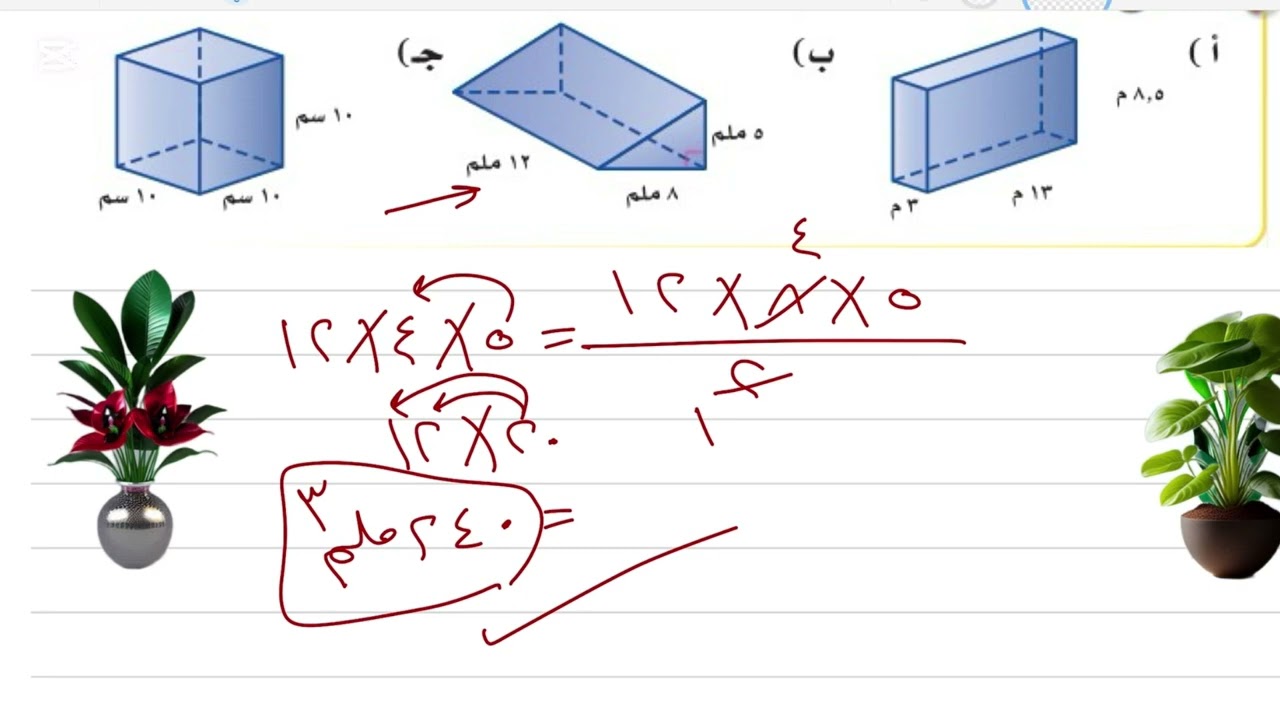 أ )
٨,٥ م
١٣ م
٣ م
ب)
٥ ملم
٨ ملم
١٢ ملم
جـ)
١٠ سم
١٠ سم
١٠ سم
٤
١٢ × ٨ × ٥
٢
١
= ١٢ × ٤ × ٥
١٢ × ٢٠
= ٢٤٠ ملم ٣